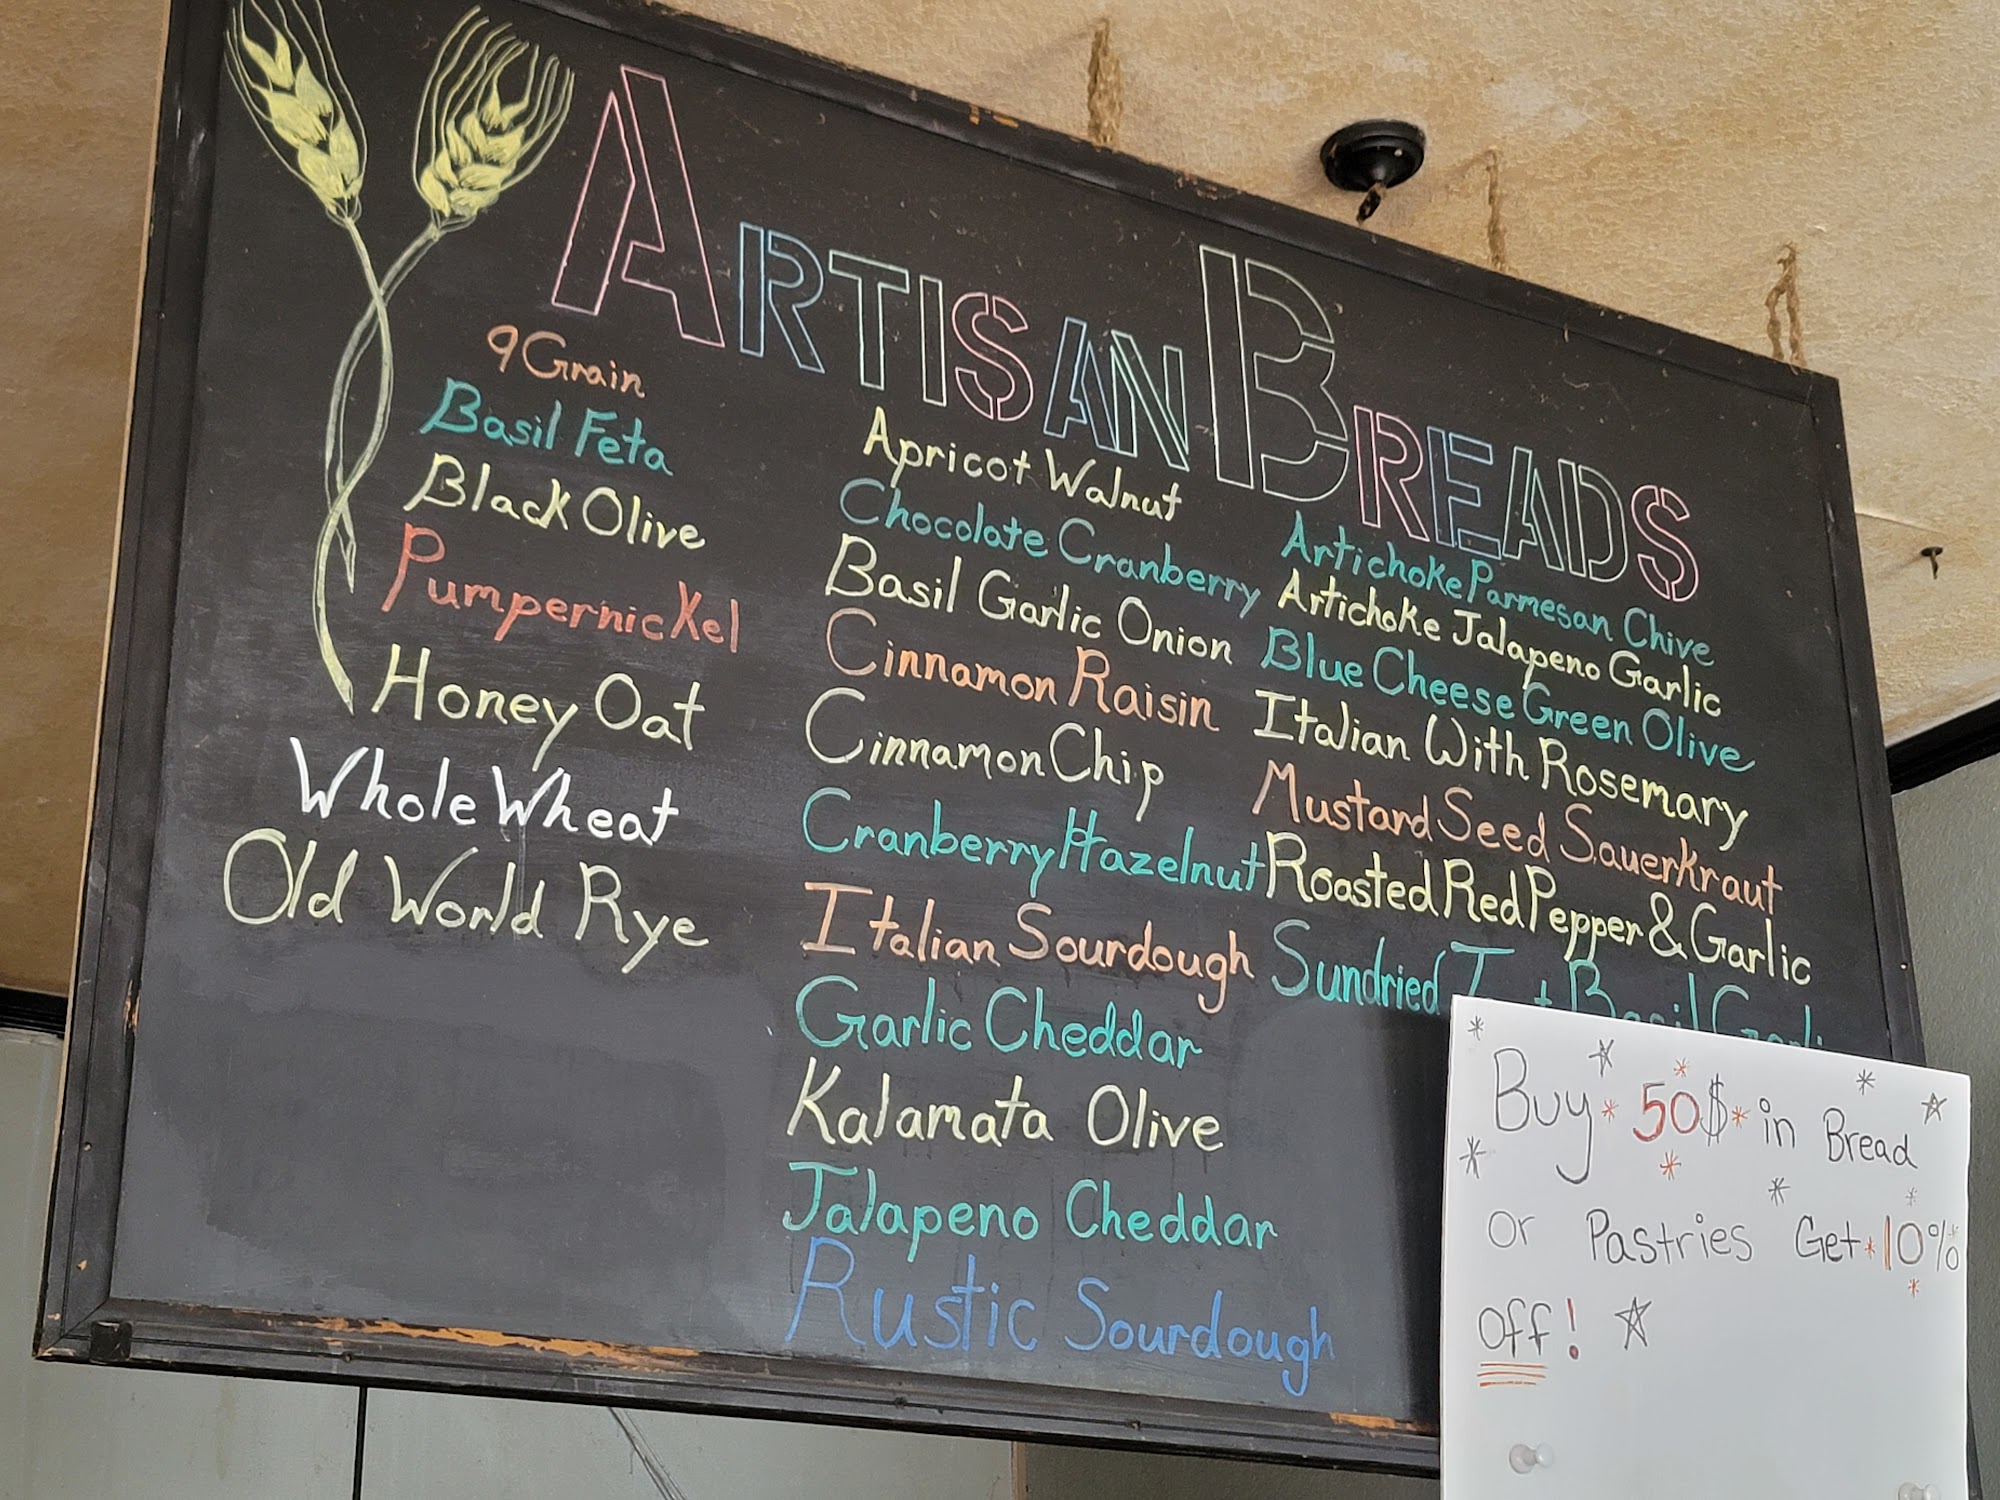 Artisan Breads
9 Grain
Basil Feta
Black Olive
Pumpernickel
Honey Oat
Whole Wheat
Old World Rye
Apricot Walnut
Chocolate Cranberry
Basil Garlic Onion
Cinnamon Raisin
Cinnamon Chip
Cranberry Hazelnut
Italian Sourdough
Garlic Cheddar
Kalamata Olive
Jalapeno Cheddar
Rustic Sourdough
Artichoke Parmesan Chive
Artichoke Jalapeno Garlic
Blue Cheese Green Olive
Italian With Rosemary
Mustard Seed Sauerkraut
Roasted Red Pepper & Garlic
Sundried Basil
Buy 50$ in Bread
or Pastries Get 10%
off!